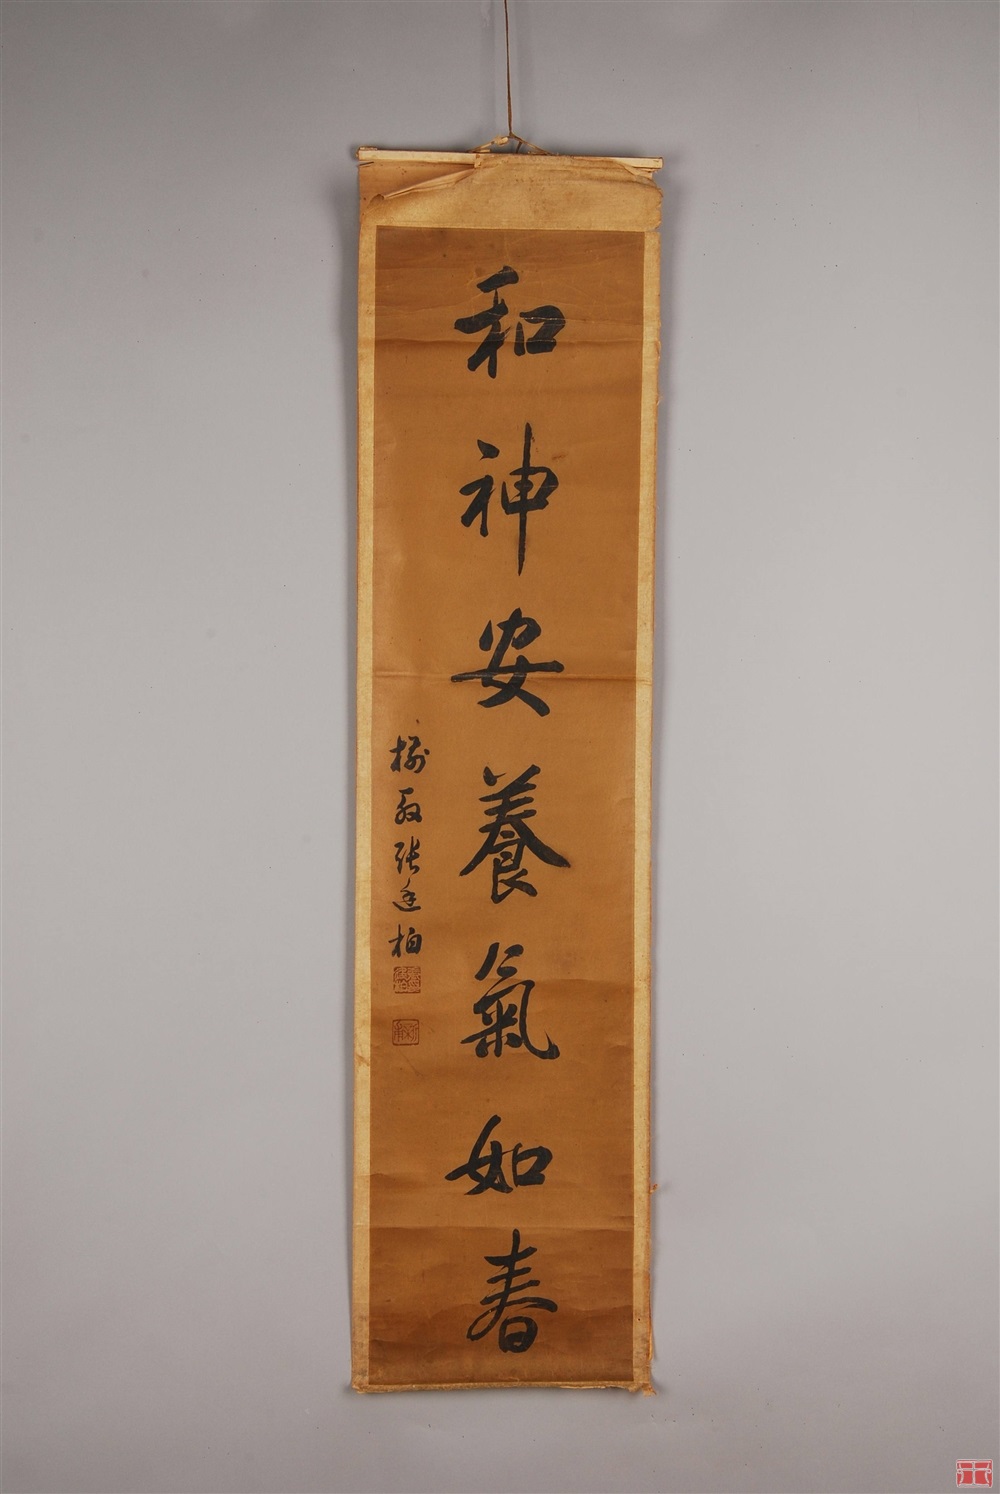 和神安養氣如春
張廷柏